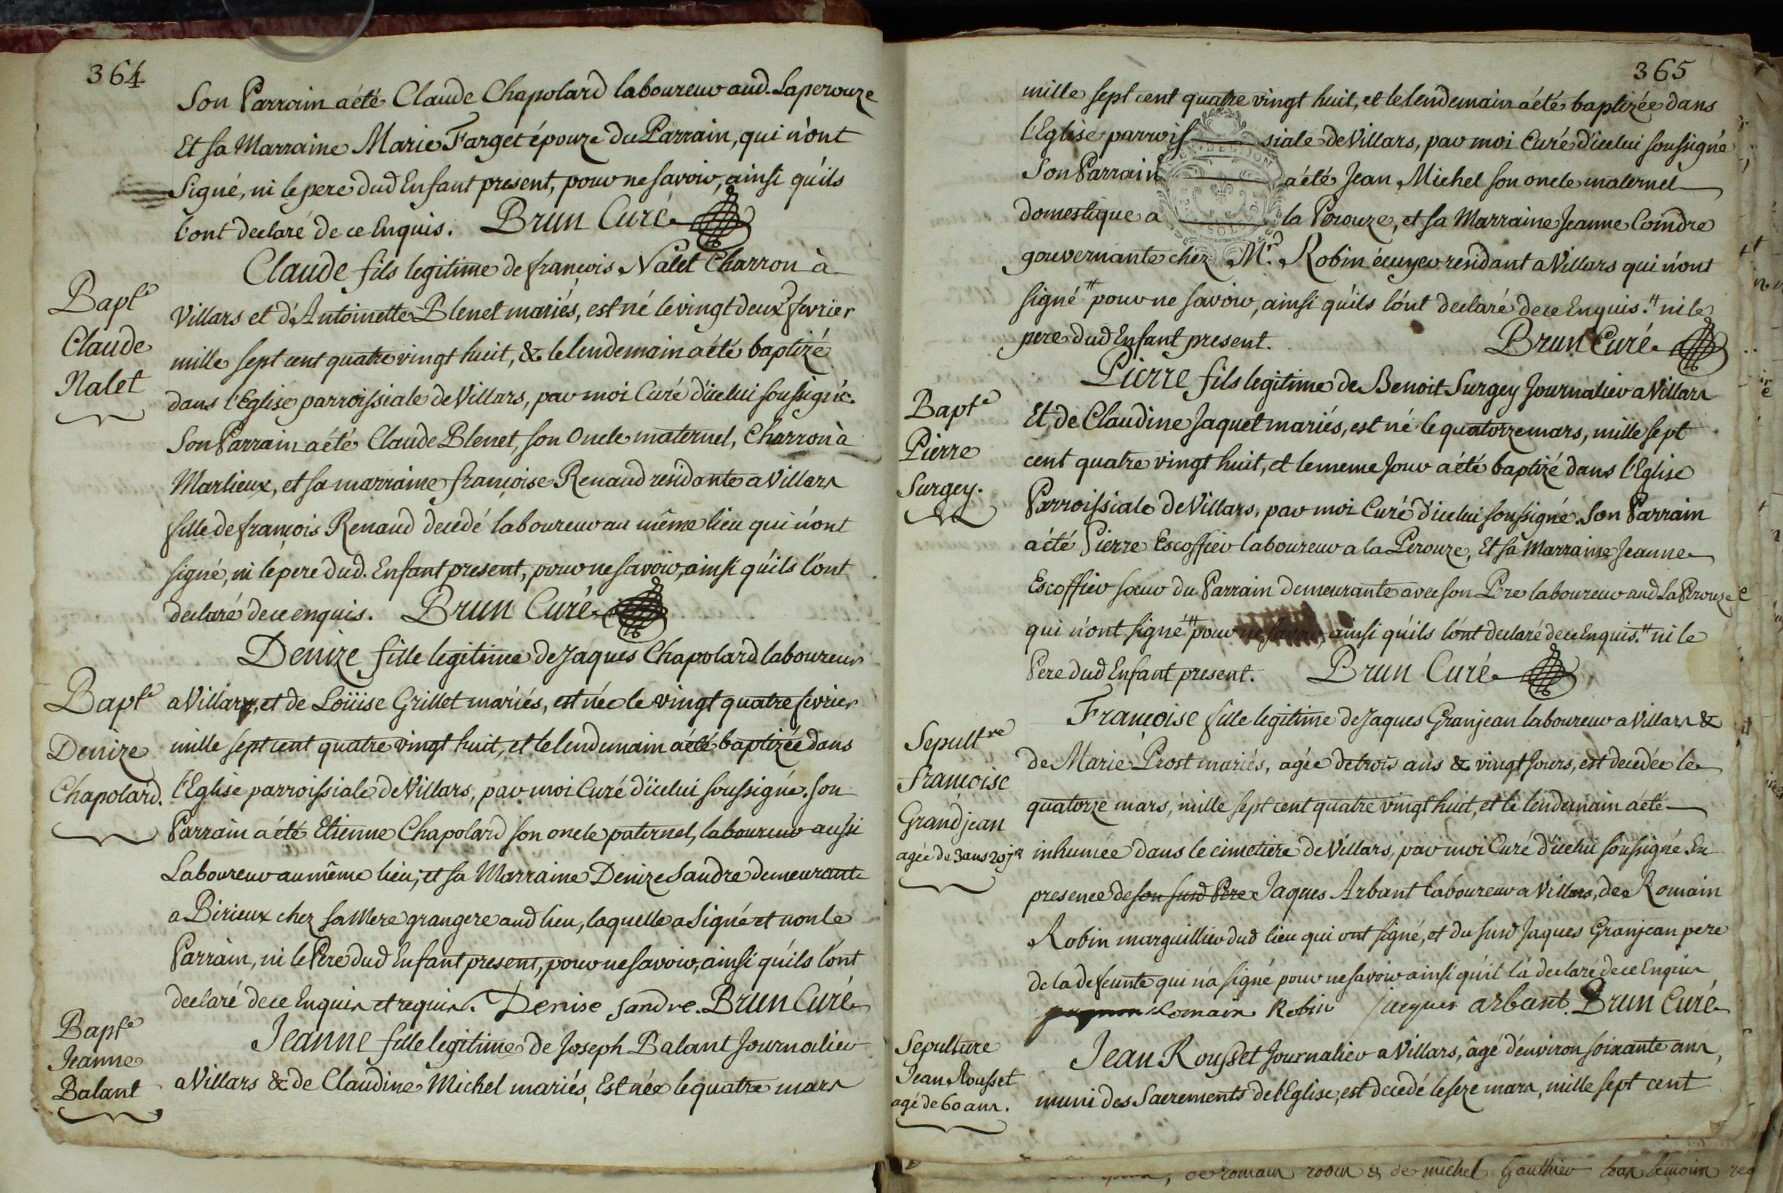 364
Son Parrain a été Claude Chapolard laboureur aud. Laperouze
Et sa Marraine Marie Farget épouze du Parrain, qui n'ont
Signé, ni le pere dud Enfant present, pour ne savoir, ainsi qu'ils
l'ont declaré de ce Enquis. Brun Curé
Bapt.e
Claude
Nalet
Claude fils legitime de françois Nalet Charron à
Villars et d'Antoinette Blenet mariés, est né le vingt deux fevrier
mille sept cent quatre vingt huit, & le lendemain a été baptizé
dans l'Eglise parroissiale de Villars, par moi Curé d'icelui soussigné.
Son Parrain a été Claude Blenet, son Oncle maternel, Charron à
Marlieux, et sa marraine françoise Renaud residante a Villars
fille de françois Renaud decedé laboureur au même lieu qui n'ont
signé, ni le pere dud. Enfant present, pour ne savoir, ainsi qu'ils l'ont
declaré de ce enquis. Brun Curé
Bapt.e
Denize
Chapolard.
Denize fille legitime de Jaques Chapolard laboureur
a Villars, et de Loüise Grillet mariés, est née le vingt quatre fevrier
mille sept cent quatre vingt huit, et le lendemain a été baptizée dans
l'Eglise parroissiale de Villars, par moi Curé d'icelui soussigné. son
Parrain a été Etienne Chapolard son oncle paternel, laboureur aussi
Laboureur au même lieu, et sa Marraine Denize Sandre demeurante
a Birieux chez sa Mere grangere aud lieu, laquelle a signé et non le
Parrain, ni le Pere dud Enfant present, pour ne savoir, ainsi qu'ils l'ont
declaré de ce Enquis et requis. Denise Sandre. Brun Curé
Bapt.e
Jeanne
Balant
Jeanne fille legitime de Joseph Balant Journalier
a Villars & de Claudine Michel mariés, Est née le quatre mars
365
mille sept cent quatre vingt huit, et le lendemain a été baptizée dans
l'Eglise parrois siale de Villars, par moi Curé d'icelui soussigné
Son Parrain a été Jean Michel son oncle maternel
domestique a la Perouze, et sa Marraine Jeanne Coindre
gouvernante chez Mr. Robin ecuyer residant a Villars qui n'ont
signé # pour ne savoir, ainsi qu'ils l'ont declaré de ce Enquis. # ni le
pere dud Enfant present. Brun Curé
Bapt.e
Pierre
Surgey.
Pierre fils legitime de Benoit Surgey Journalier a Villars
Et de Claudine Jaquet mariés, est né le quatorze mars, mille sept
cent quatre vingt huit, et le meme Jour a été baptizé dans l'Eglise
Parroissiale de Villars, par moi Curé d'icelui soussigné. Son Parrain
a été Pierre Escoffier laboureur a la Perouze, Et sa Marraine Jeanne
Escoffier sœur du Parrain demeurante avec son Pere laboureur aud La Perouze
qui n'ont signé # pour ne savoir, ainsi qu'ils l'ont declaré de ce Enquis. # ni le
Pere dud Enfant present. Brun Curé
Sepultre
françoise
Grandjean
agée de 3 ans 20 jrs
Françoise fille legitime de Jaques Granjean laboureur a Villars &
de Marie Prost mariés, agée de trois ans & vingt Jours, est decedée le
quatorze mars, mille sept cent quatre vingt huit, et le lendemain a été
inhumée dans le cimetiere de Villars, par moi Curé d'icelui soussigné En
presence de son susd Pere Jaques Arbant laboureur a Villars, de Romain
Robin marguillier dud lieu qui ont signé, et du susd Jaques Granjean pere
de la defeunte qui n'a signé pour ne savoir ainsi qu'il l'a declaré de ce Enquis
Romain Robin jacques arbant. Brun Curé
Sepulture
Jean Rousset
agé de 60 ans.
Jean Rousset Journalier a Villars, âgé d'environ soixante ans,
muni des Sacrements de l'Eglise, est decedé le seze mars, mille sept cent
de romain robin & de michel Gauthier